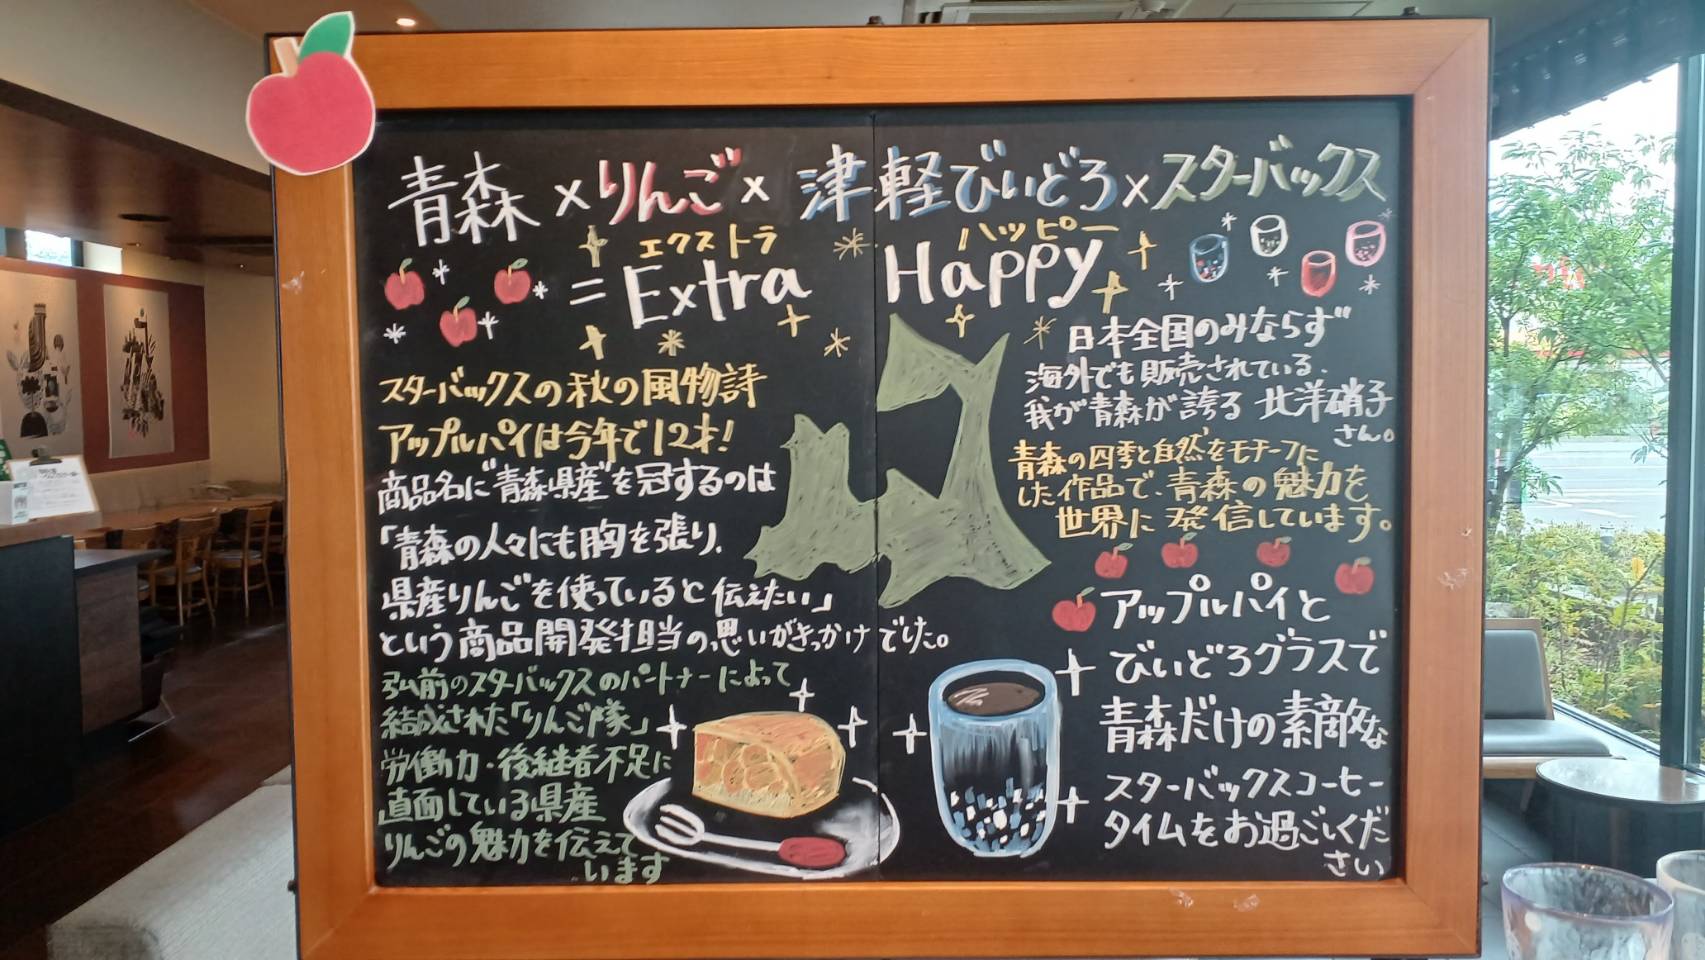 青森×りんご×津軽びいどろ×スターバックス
エクストラ ハッピー
=Extra Happy
スターバックスの秋の風物詩
アップルパイは今年で12才!
商品名に"青森県産"を冠するのは
「青森の人々にも胸を張り、
県産りんごを使っていると伝えたい」
という商品開発担当の思いがきっかけでした。
弘前のスターバックスのパートナーによって
結成された「りんご隊」
労働力・後継者不足に
直面している県産
りんごの魅力を伝えて
います
日本全国のみならず
海外でも販売されている、
我が青森が誇る 北洋硝子
さん。
青森の四季と自然をモチーフに
した作品で、青森の魅力を
世界に発信しています。
アップルパイと
びいどろグラスで
青森だけの素敵な
スターバックスコーヒー
タイムをお過ごしくだ
さい